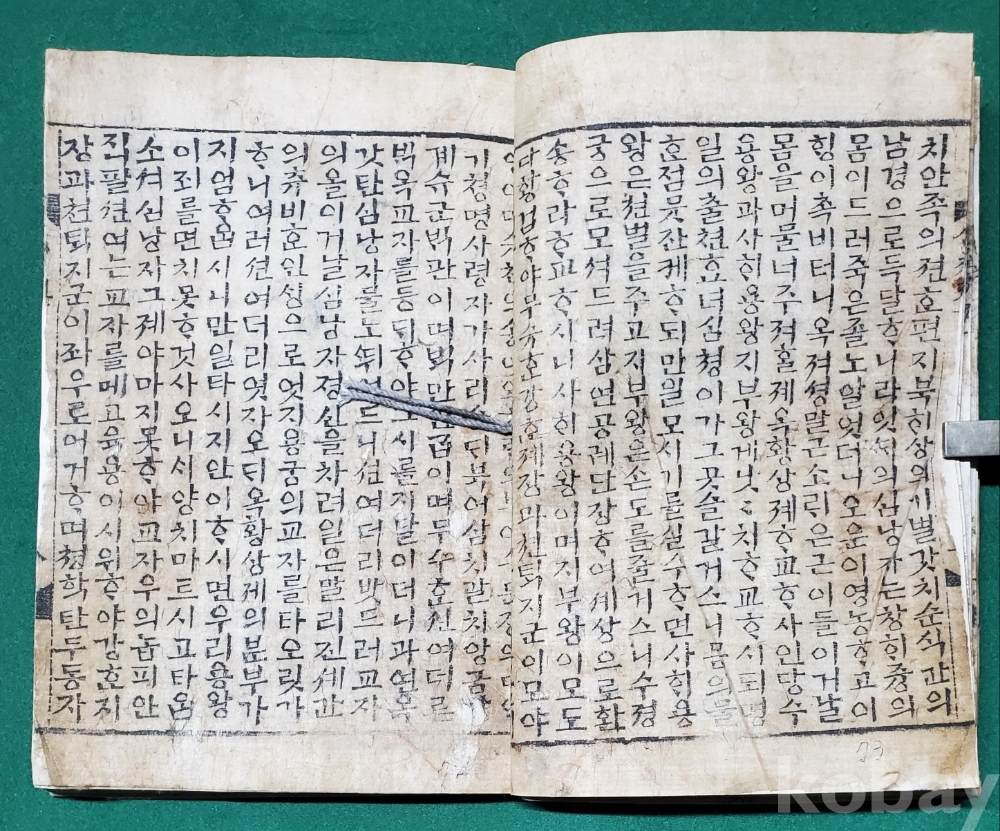 치안족의젼호편지북히상의기별갓치순식간의
남경으로득달ᄒᆞ니라잇ᄯᆡ의심낭ᄌᆞ는창히즁의
몸이드러죽은쥴노알엇더니오운이영농ᄒᆞ고이
힝이촉비터니옥져셩말근소ᄅᆡ은근이들이거날
몸을머물너주져ᄒᆞᆯ제옥황상졔ᄒᆞ교ᄒᆞ사인당수
용왕과사히용왕지부왕게낫〃치ᄒᆞ교ᄒᆞ시되명
일의출쳔효녀심쳥이가그곳슬갈거스니몸의물
ᄒᆞᆫ점뭇잔케ᄒᆞ되만일모시기를실수ᄒᆞ면사히용
왕은쳔벌을주고지부왕은손도를줄거스니수졍
궁으로모셔드려삼연공궤단장ᄒᆞ여셰상으로환
송ᄒᆞ라ᄒᆞ교ᄒᆞ시니사히용왕이며지부왕이모도
다황겁ᄒᆞ야무슈ᄒᆞᆫ강ᄒᆞᆫ졔장과쳔퇴지군이모야
기쳥명사령자가사리
계슈군ᄇᆡᆨ관이며ᄇᆡᆨ만인갑이며무수ᄒᆞᆫ션여더른
ᄇᆡᆨ옥교자를등ᄃᆡᄒᆞ야그시를지달이더니과연옥
갓탄심낭자물노ᄯᅱ여드니션여더리밧드러교자
의올이거날심낭자졍신을차려일은말리진셰간
의츄비ᄒᆞᆫ인ᄉᆡᆼ으로엇지용궁의교자를타오릿가
ᄒᆞ니여러션여더리엿자오ᄃᆡ옥황상졔의분부가
지엄ᄒᆞ옵시니만일타시지안이ᄒᆞ시면우리용왕
이죄를면치못ᄒᆞ것사오니사양치마르시고타옵
소셔심낭자그졔야마지못ᄒᆞ야교자우의놉피안
직팔션여는교자를메고육용이시위ᄒᆞ야강ᄒᆞᆫ지
장과쳔퇴지군이좌우로어거ᄒᆞ며쳥학탄두동자
73
kobay